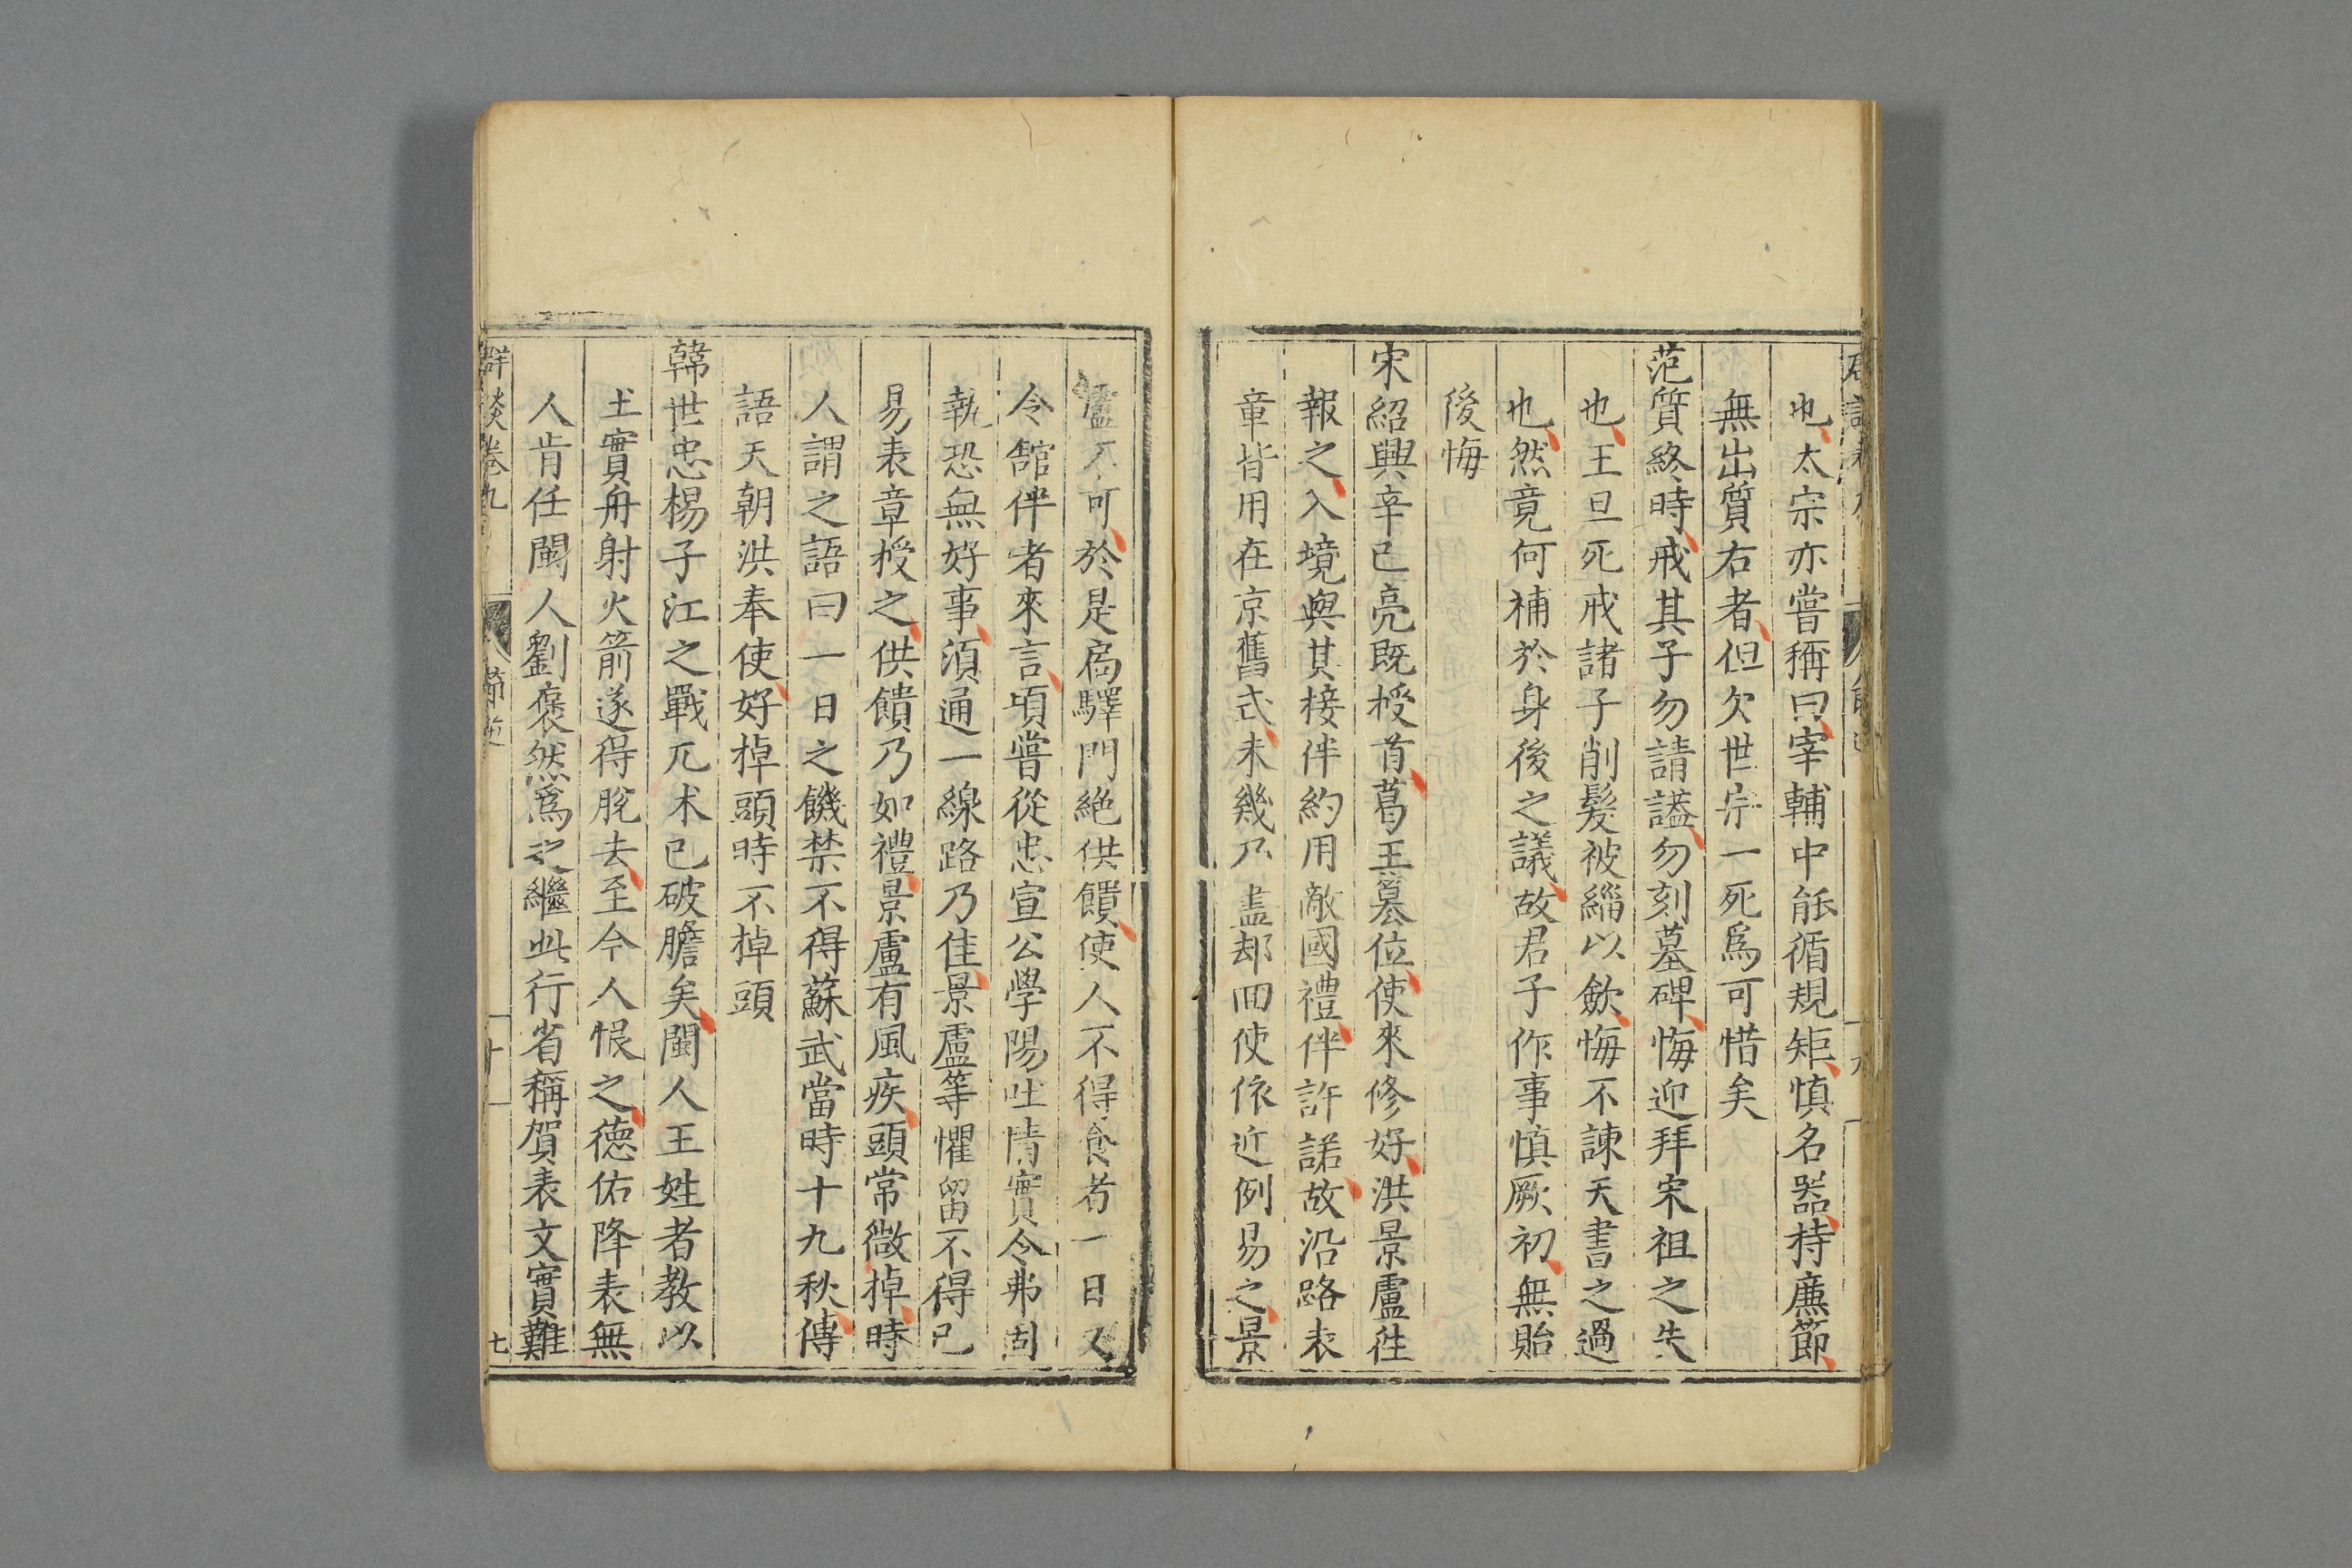 也太宗亦嘗稱曰宰輔中能循規矩慎名器持廉節
無出質右者但欠世宗一死爲可惜矣
范質終時戒其子勿請謚勿刻墓碑悔迎拜宋祖之失
也王旦死戒諸子削髮被緇以歛悔不諫天書之過
也然竟何補於身後之議故君子作事慎厥初無貽
後悔
宋紹興辛巳亮既授首葛王篡位使來修好洪景盧徃
報之入境與其接伴約用敵國禮伴許諾故沿路表
章皆用在京舊式未幾乃盡却回使依近例易之景
盧不可於是扄驛門絶供饋使人不得食者一日又
令館伴者來言頃嘗從忠宣公學陽吐情實令弗固
執恐無好事湏通一線路乃佳景盧等懼留不得已
易表章授之供饋乃如禮景盧有風疾頭常微掉時
人謂之語曰一日之饑禁不得蘇武當時十九秋傳
語天朝洪奉使好掉頭時不掉頭
韓世忠楊子江之戰兀术已破膽矣閩人王姓者教以
土實舟射火箭遂得脫去至今人恨之德佑降表無
人肯任閩人劉褒然爲之繼此行省稱賀表文實難
群談卷九
十
七